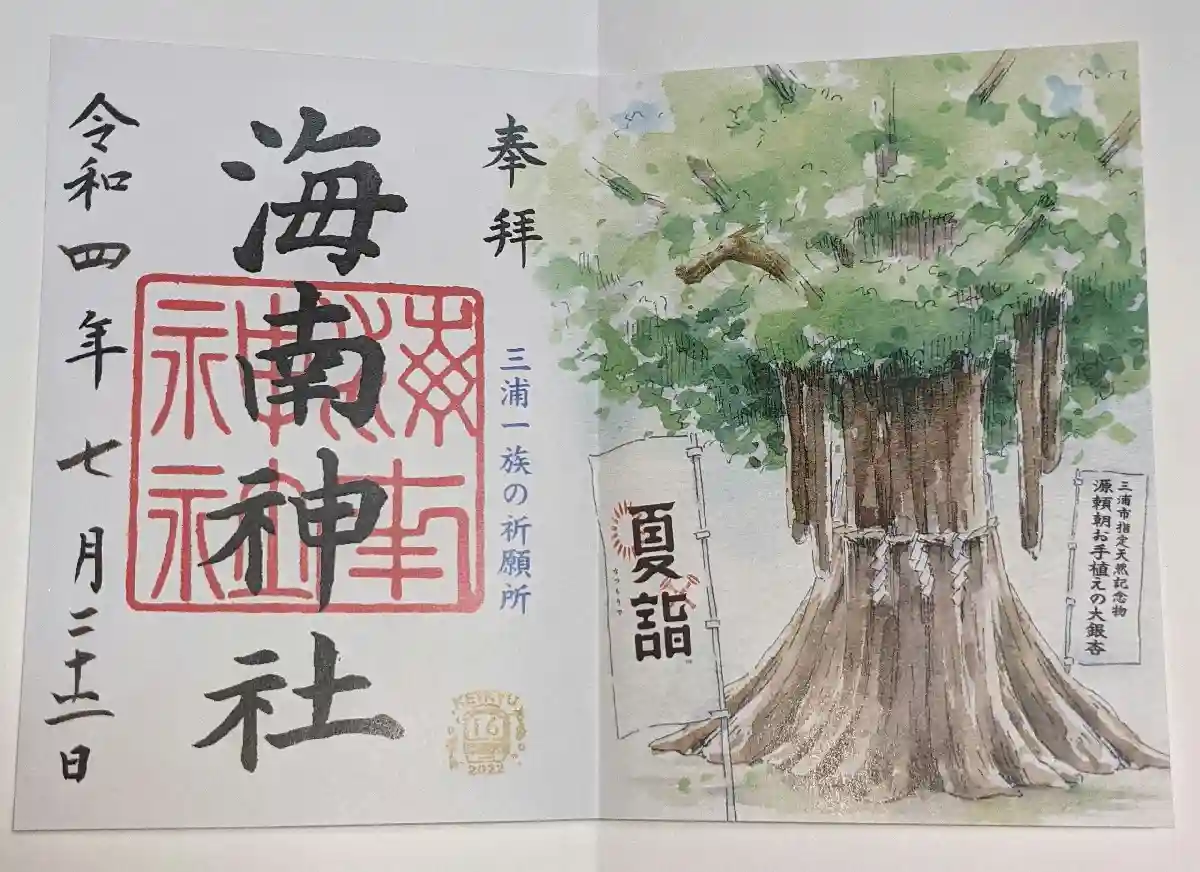 奉拝
三浦一族の祈願所
海南神社
令和四年七月二十二日
KEIKYU
16
2022
夏詣
三浦市指定天然記念物
源頼朝お手植えの大銀杏